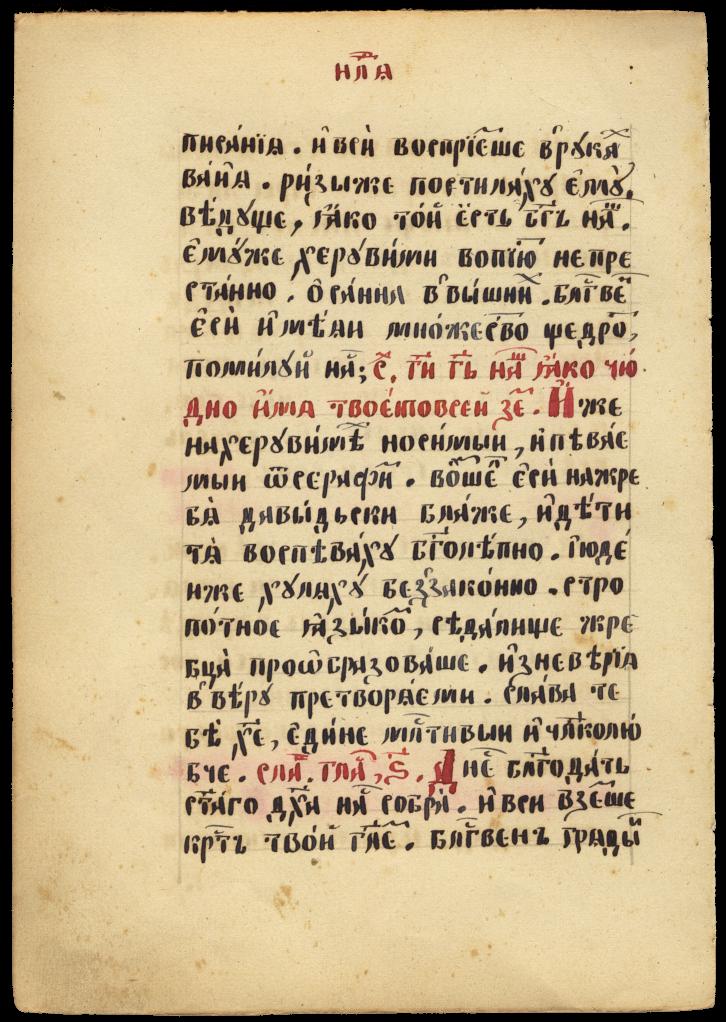 нл҃а
писа́нїѧ . и҆ вси̑ воспрїе́мше в̾рука̑
ва́иѧ . ри́зы же постила́ху є҆мꙋ̀,
вѣ́дуще, ꙗ҆́ко то́й є҆́сть бг҃ъ на́ш .
є҆му́же херуви́ми вопїю́т непре
ста́нно . о҆са́нна в̾вы́шних . благ҇ве́н
є҆си̑ и҆мѣ́ѧи мно́жество щедро́т,
поми́луй на́с; с҃. гⷭ҇и гⷭ҇ь на́ш ꙗ҆́ко чю́
дно и҆́мѧ твоѐ повсей земли . И҆́же
нахеруви́мѣх носи́мыи, и҆ пѣва́е
мыи ѿсерафи́м . во́шед є҆си̑ нажре
бѧ̀ давы́дьски бла́же, и҆ дѣ́ти
тѧ̀ воспѣва́ху бг҃олѣ́пно . Їюде́
иже хулѧ́ху беззако́нно . стро
по́тное ꙗ҆зы́ком, сѣдѧ́лище жре
бцѧ̀ проѡбразова́ше . и҆зневѣ́рїѧ
в̾вѣ́ру претворѧ́еми . сла́ва те
бѣ̀ хⷭ҇е, є҆ди́не млⷭ҇тивыи и҆ чл҃колю́
бче . сла́в. гла́с, ѕ҃. Дне́сь блг҃ода́ть
ст҃а́го дх҃а на́с собра̀ . и҆ вси взе́мше
крⷭ҇тъ тво́й гл҃ем . благ҇венъ грѧды́й